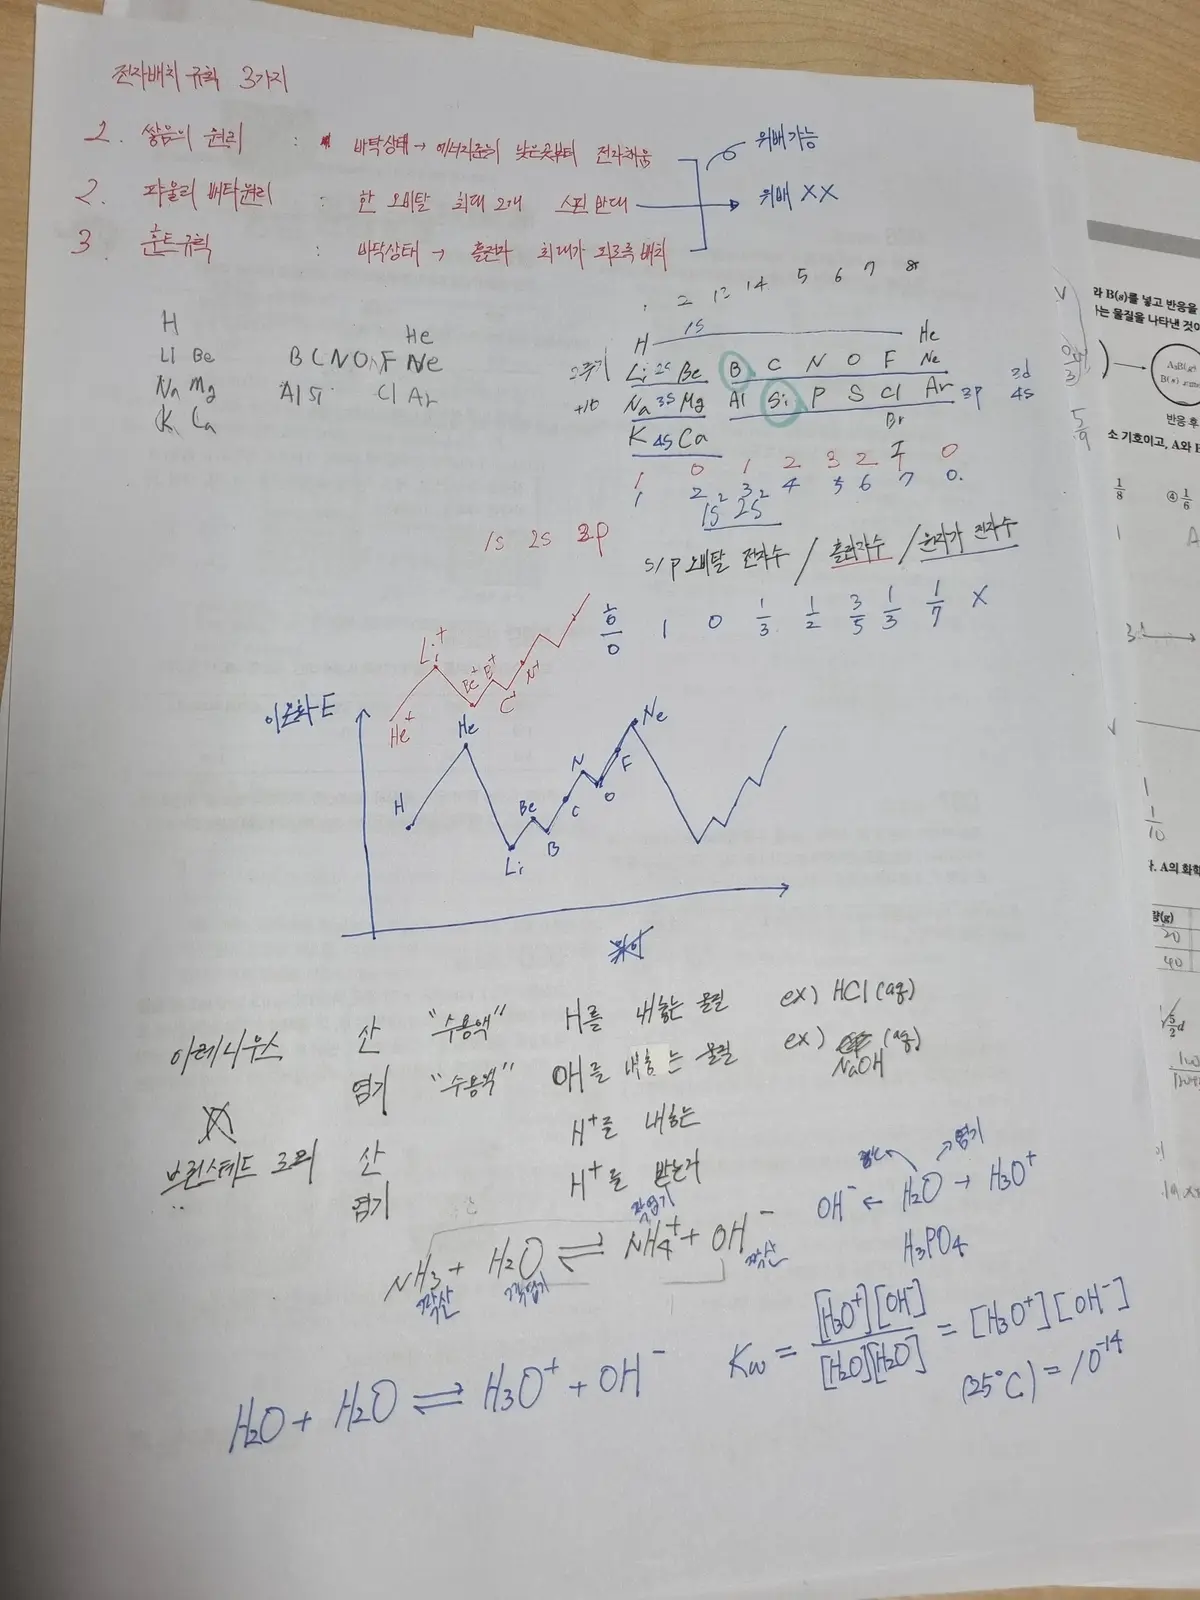 전자배치 규칙 3가지
1. 쌓음의 원리 : 바닥상태→에너지준위 낮은곳부터 전자채움
위배가능
2. 파울리 배타원리 : 한 오비탈 최대 2개 스핀 반대
위배 XX
3 훈트규칙 : 바닥상태→ 홀전자 최대가 되로록 배치
1 2 13 14 5 6 7 8
H
He
Li Be B C N O F Ne
Na Mg Al Si Cl Ar
K Ca
H 1S He
2주기 Li 2S Be B C N O F Ne
Na 3S Mg Al Si P S Cl Ar 3p
3d
4s
K 4S Ca Br
I
1 0 1 2 3 2 1 0
1 2 3 4 5 6 7 0.
1S² 2S²
1s 2s 2p
s/p 오비탈 전자수 / 홀전자수 / 원자가 전자수
1 0 1/3 1/2 3/5 1/3 1/7 X
Li⁺
Be⁺
C⁺
N⁺
He⁺
이온화 E
H
He
Li
Be
B
C
N
O
F
Ne
아레니우스 산 "수용액" H를 내놓는 물질 ex) HCl (aq)
염기 "수용액" OH를 내놓는 물질 ex) NaOH (aq)
브뢴스테드 로리 산 H⁺를 내놓는
염기 H⁺를 받는거
염기
OH⁻ ← H₂O → H₃O⁺
H₃PO₄
NH₃ + H₂O ⇌ NH₄⁺ + OH⁻
짝산
짝염기
짝염기
짝산
Kw = [H₃O⁺][OH⁻] / [H₂O][H₂O] = [H₃O⁺][OH⁻]
(25°C) = 10⁻¹⁴
H₂O + H₂O ⇌ H₃O⁺ + OH⁻
라 B(s)를 넣고 반응을
는 물질을 나타낸 것이
반응 후
소 기호이고, A와 B
1/8
④ 1/6
3
1/10
A의 화학
량(g)
20
40